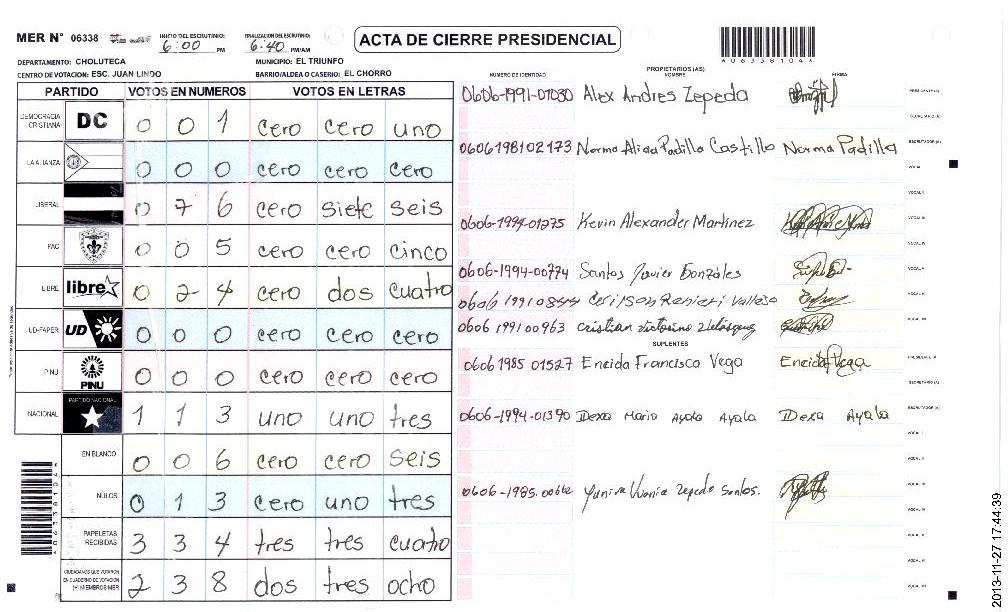 MER N° 06338
INICIO DEL ESCRUTINIO: 6:00 PM
FINALIZACION DEL ESCRUTINIO: 6:40 PM/AM
ACTA DE CIERRE PRESIDENCIAL
* 0 6 3 3 8 1 0 4 *
DEPARTAMENTO: CHOLUTECA
MUNICIPIO: EL TRIUNFO
CENTRO DE VOTACION: ESC. JUAN LINDO
BARRIO/ALDEA O CASERIO: EL CHORRO
PARTIDO VOTOS EN NUMEROS VOTOS EN LETRAS
DEMOCRACIA CRISTIANA DC 0 0 1 cero cero uno
LA ALIANZA 0 0 0 cero cero cero
LIBERAL 0 7 6 cero siete seis
PAC 0 0 5 cero cero cinco
LIBRE libre 0 2 4 cero dos cuatro
UD-FAPER UD 0 0 0 cero cero cero
PINU PINU 0 0 0 cero cero cero
NACIONAL PARTIDO NACIONAL 1 1 3 uno uno tres
EN BLANCO 0 0 6 cero cero seis
NULOS 0 1 3 cero uno tres
PAPELETAS RECIBIDAS 3 3 4 tres tres cuatro
CIUDADANOS QUE VOTARON EN CUADERNO DE VOTACION (+) MIEMBROS MER 2 3 8 dos tres ocho
PROPIETARIOS (AS)
NUMERO DE IDENTIDAD NOMBRE FIRMA
0606-1991-01030 Alex Andres Zepeda
PRESIDENTE (A)
SECRETARIO (A)
0606198102173 Norma Alicia Padilla Castillo Norma Padilla ESCRUTADOR (A)
VOCAL I
VOCAL II
0606-1994-01275 Kevin Alexander Martinez VOCAL III
VOCAL IV
0606-1994-00774 Santos Javier Gonzáles VOCAL V
VOCAL VI
0606 1991 00963 Cristian Victorino Velásquez
SUPLENTES
0606 1985 01527 Eneida Francisca Vega Eneida Vega PRESIDENTE (A)
SECRETARIO (A)
0606-1994-01390 Dexa Maria Ayala Ayala Dexa Ayala ESCRUTADOR (A)
VOCAL I
VOCAL II
0606-1985-00612 Zepeda Santos.
VOCAL III
VOCAL IV
VOCAL V
VOCAL VI
2013-11-27 17:44:39